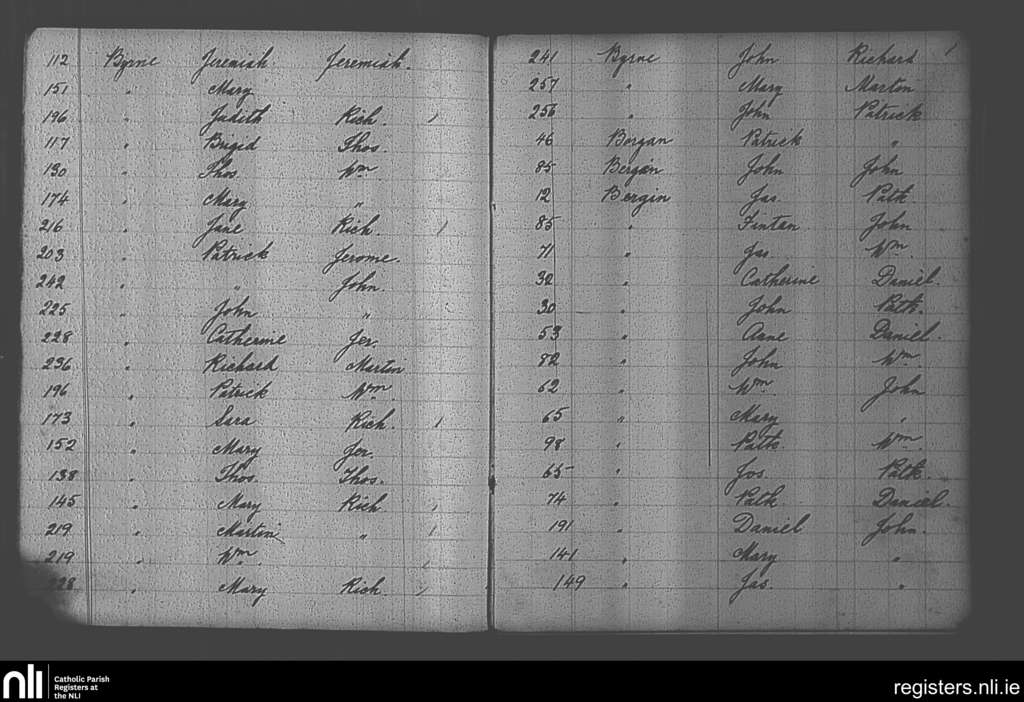 112 Byrne Jeremiah Jeremiah.
151 " Mary
196 " Judith Rich. /
117 " Brigid Thos.
130 " Thos. Wm
174 " Mary "
216 " Jane Rich. /
203 " Patrick Jerome.
242 " " John.
225 " John "
228 " Catherine Jer.
236 " Richard Martin
196 " Patrick Wm.
173 " Sara Rich. /
152 " Mary Jer.
138 " Thos. Thos.
145 " Mary Rich /
219 " Martin " /
219 " Wm. /
" Mary Rich. /
241 Byrne John Richard /
257 " Mary Martin
256 " John Patrick
46 Borgan Patrick "
85 Bergan John John
12 Bergin Jas. Patk.
85 " Fintan John
71 " Jas. Wm.
32 " Catherine Daniel.
30 " John Patk.
53 " Anne Daniel.
82 " John Wm.
62 " Wm. John
65 " Mary "
98 " Patk Wm
65 " Jos. Patk.
74 " Patk Daniel.
191 " Daniel John.
141 " Mary "
149 " Jas. "
nli Catholic Parish
Registers at
the NLI
registers.nli.ie